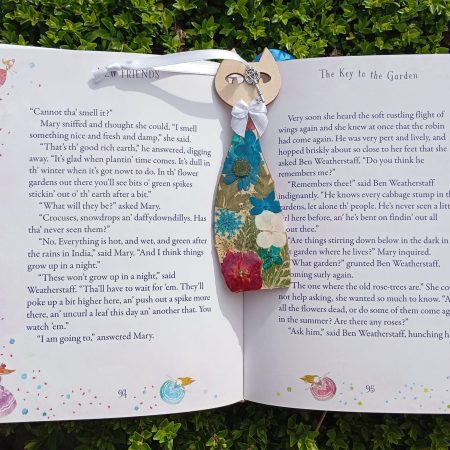 NEW FRIENDS
"Cannot tha' smell it?"
Mary sniffed and thought she could. "I smell
something nice and fresh and damp," she said.
"That's th' good rich earth," he answered, digging
away. "It's glad when plantin' time comes. It's dull in
th' winter when it's got nowt to do. In th' flower
gardens out there you'll see bits o' green spikes
stickin' out o' th' earth after a bit."
"What will they be?" asked Mary.
"Crocuses, snowdrops an' daffydowndillys. Has
tha' never seen them?"
"No. Everything is hot, and wet, and green after
the rains in India," said Mary. "And I think things
grow up in a night."
"These won't grow up in a night," said
Weatherstaff. "Tha'll have to wait for 'em. They'll
poke up a bit higher here, an' push out a spike more
there, an' uncurl a leaf this day an' another that. You
watch 'em."
"I am going to," answered Mary.
94
The Key to the Garden
Very soon she heard the soft rustling flight of
wings again and she knew at once that the robin
had come again. He was very pert and lively, and
hopped briskly about so close to her feet that she
asked Ben Weatherstaff, "Do you think he
remembers me?"
"Remembers thee!" said Ben Weatherstaff
indignantly. "He knows every cabbage stump in th'
gardens, let alone th' people. He's never seen a little
here before, an' he's bent on findin' out all
out thee.
"Are things stirring down below in the dark in
garden where he lives?" Mary inquired.
"What garden?" grunted Ben Weatherstaff,
coming surly again.
"The one where the old rose-trees are." She co
not help asking, she wanted so much to know. "A
all the flowers dead, or do some of them come aga
in the summer? Are there any roses?"
"Ask him," said Ben Weatherstaff, hunching h
95